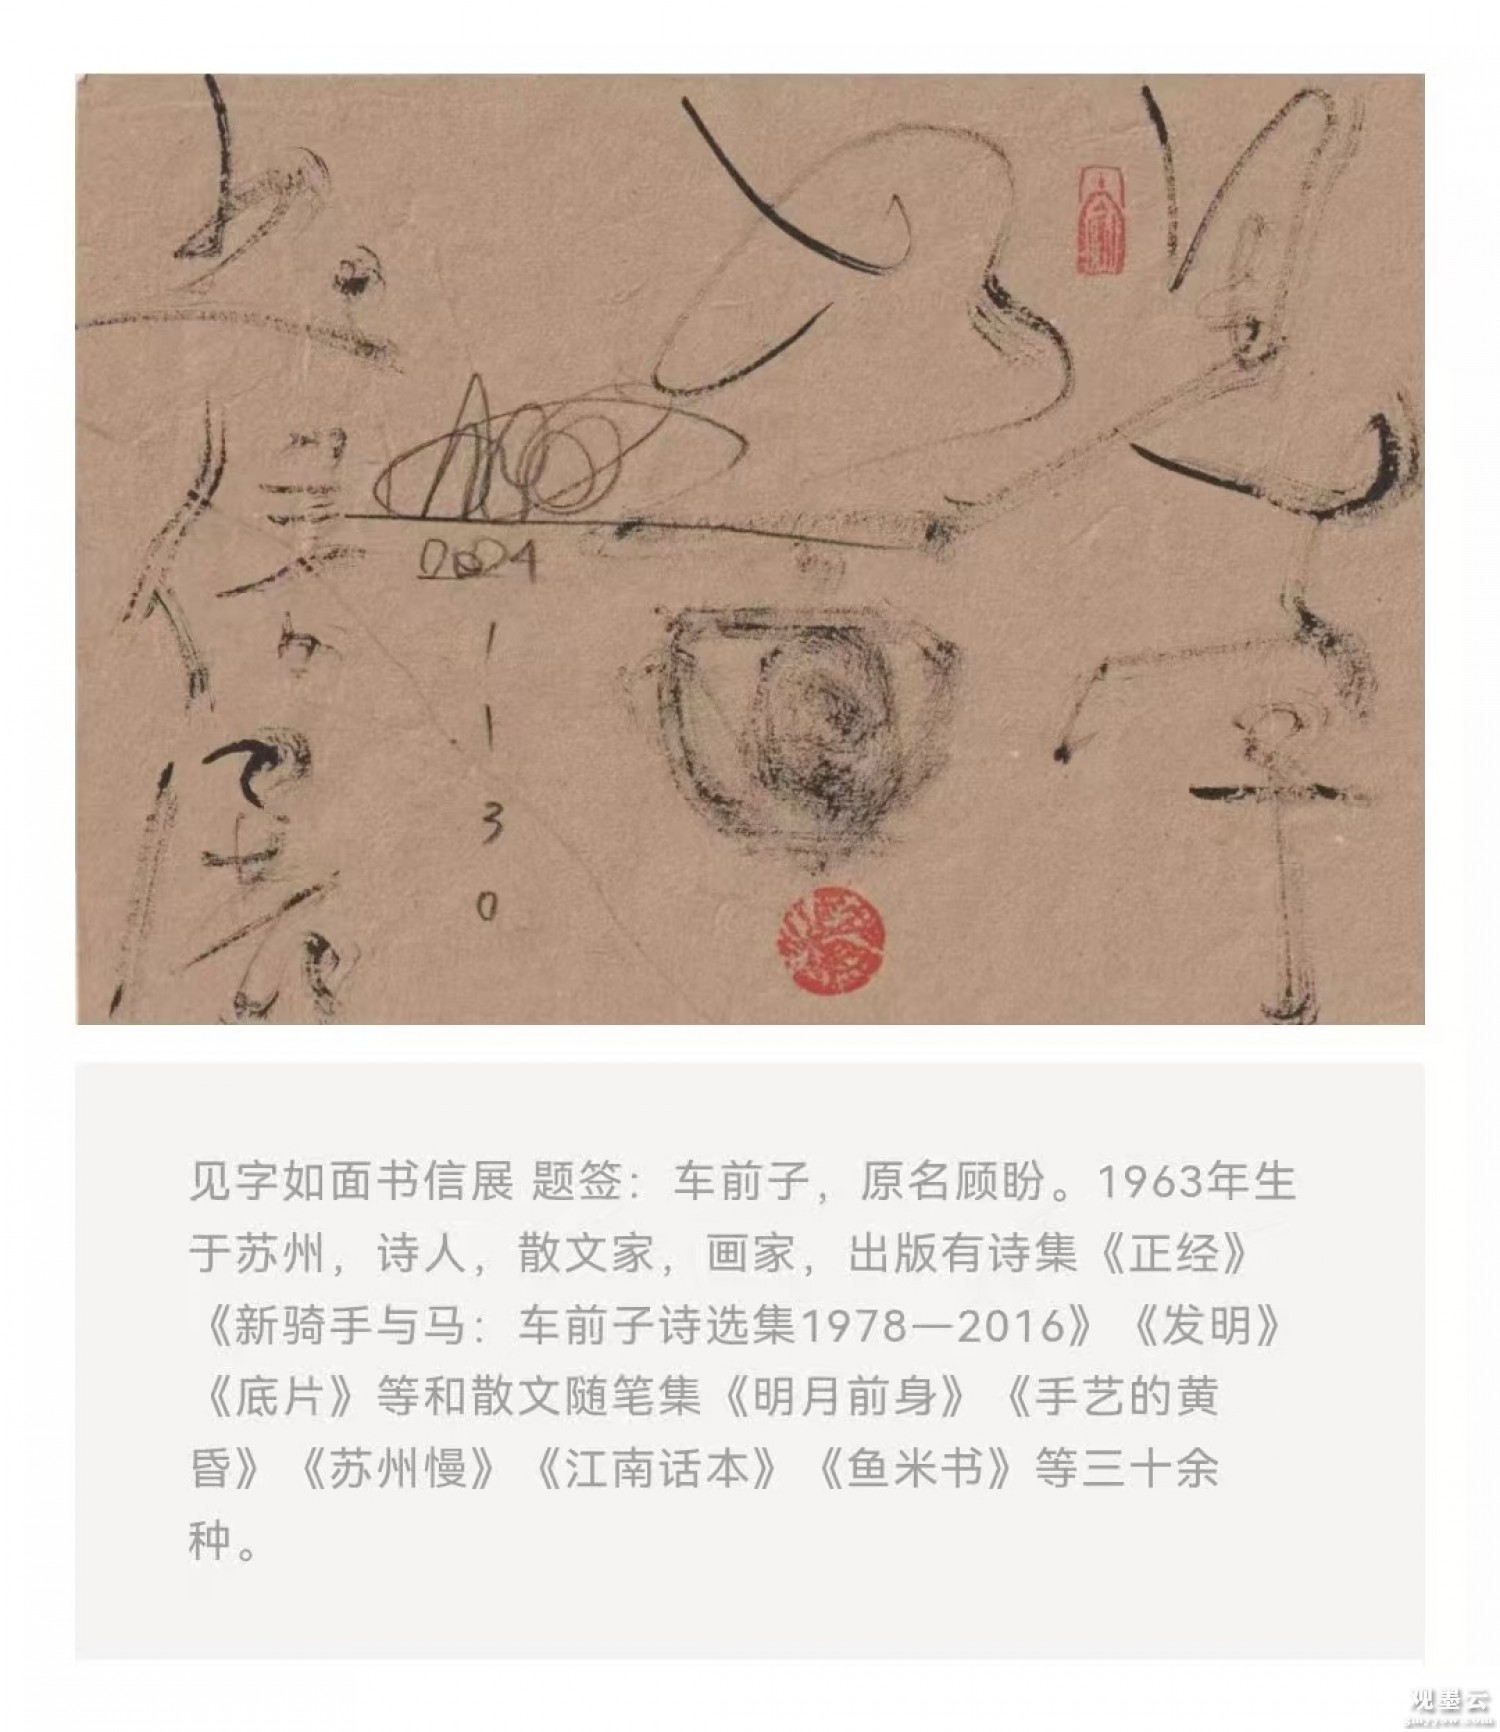 见字
如面
书信展
2024
1
1
3
0
见字如面书信展 题签：车前子，原名顾盼。1963年生
于苏州，诗人，散文家，画家，出版有诗集《正经》
《新骑手与马：车前子诗选集1978—2016》《发明》
《底片》等和散文随笔集《明月前身》《手艺的黄
昏》《苏州慢》《江南话本》《鱼米书》等三十余
种。
观墨云
gmyyow.com